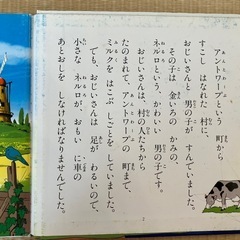 アントワープという 町から
すこし はなれた 村に、
おじいさんと 男の子が すんでいました。
その男の子は 金いろの かみの、
ネルロという、かわいい 男の子です。
おじいさんは、村の人たちから
たのまれて、アントワープの 町まで
ミルクを はこぶ しごとを していました。
でも、おじいさんは 足が わるいので、
小さな ネルロが、おもい 車の
あとおしを しなければなりませんでした。
2